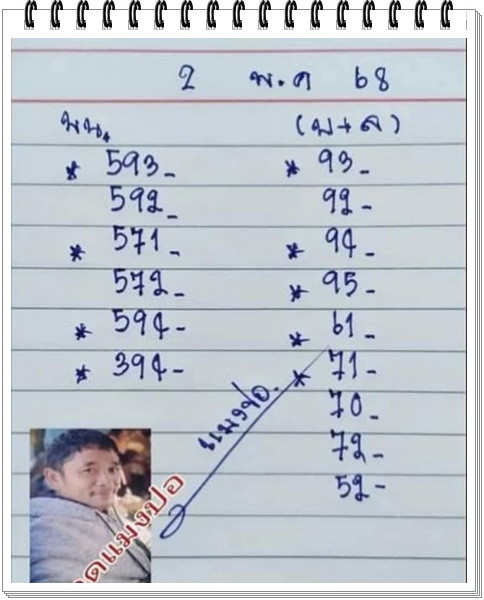 2 พ.ค 68
บน. (บ+ล)
* 593- * 93-
592- 92-
* 571- * 94-
572- * 95-
* 594- * 61-
* 394- * 71-
70-
72-
52-
แมงปอ.
ดแมงปอ